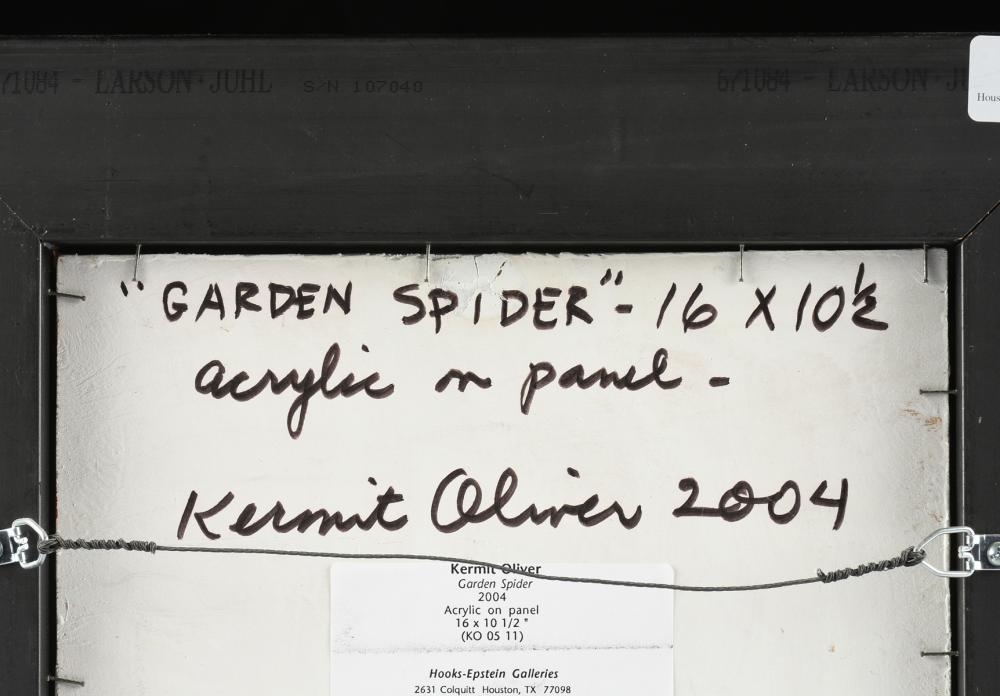 71084 - LARSON·JUHL S/N 107040 671084 - LARSON·JU
Hous
"GARDEN SPIDER" - 16 X 10½
acrylic on panel -
Kermit Oliver 2004
Kermit Oliver
Garden Spider
2004
Acrylic on panel
16 x 10 1/2 "
(KO 05 11)
Hooks-Epstein Galleries
2631 Colquitt Houston, TX 77098